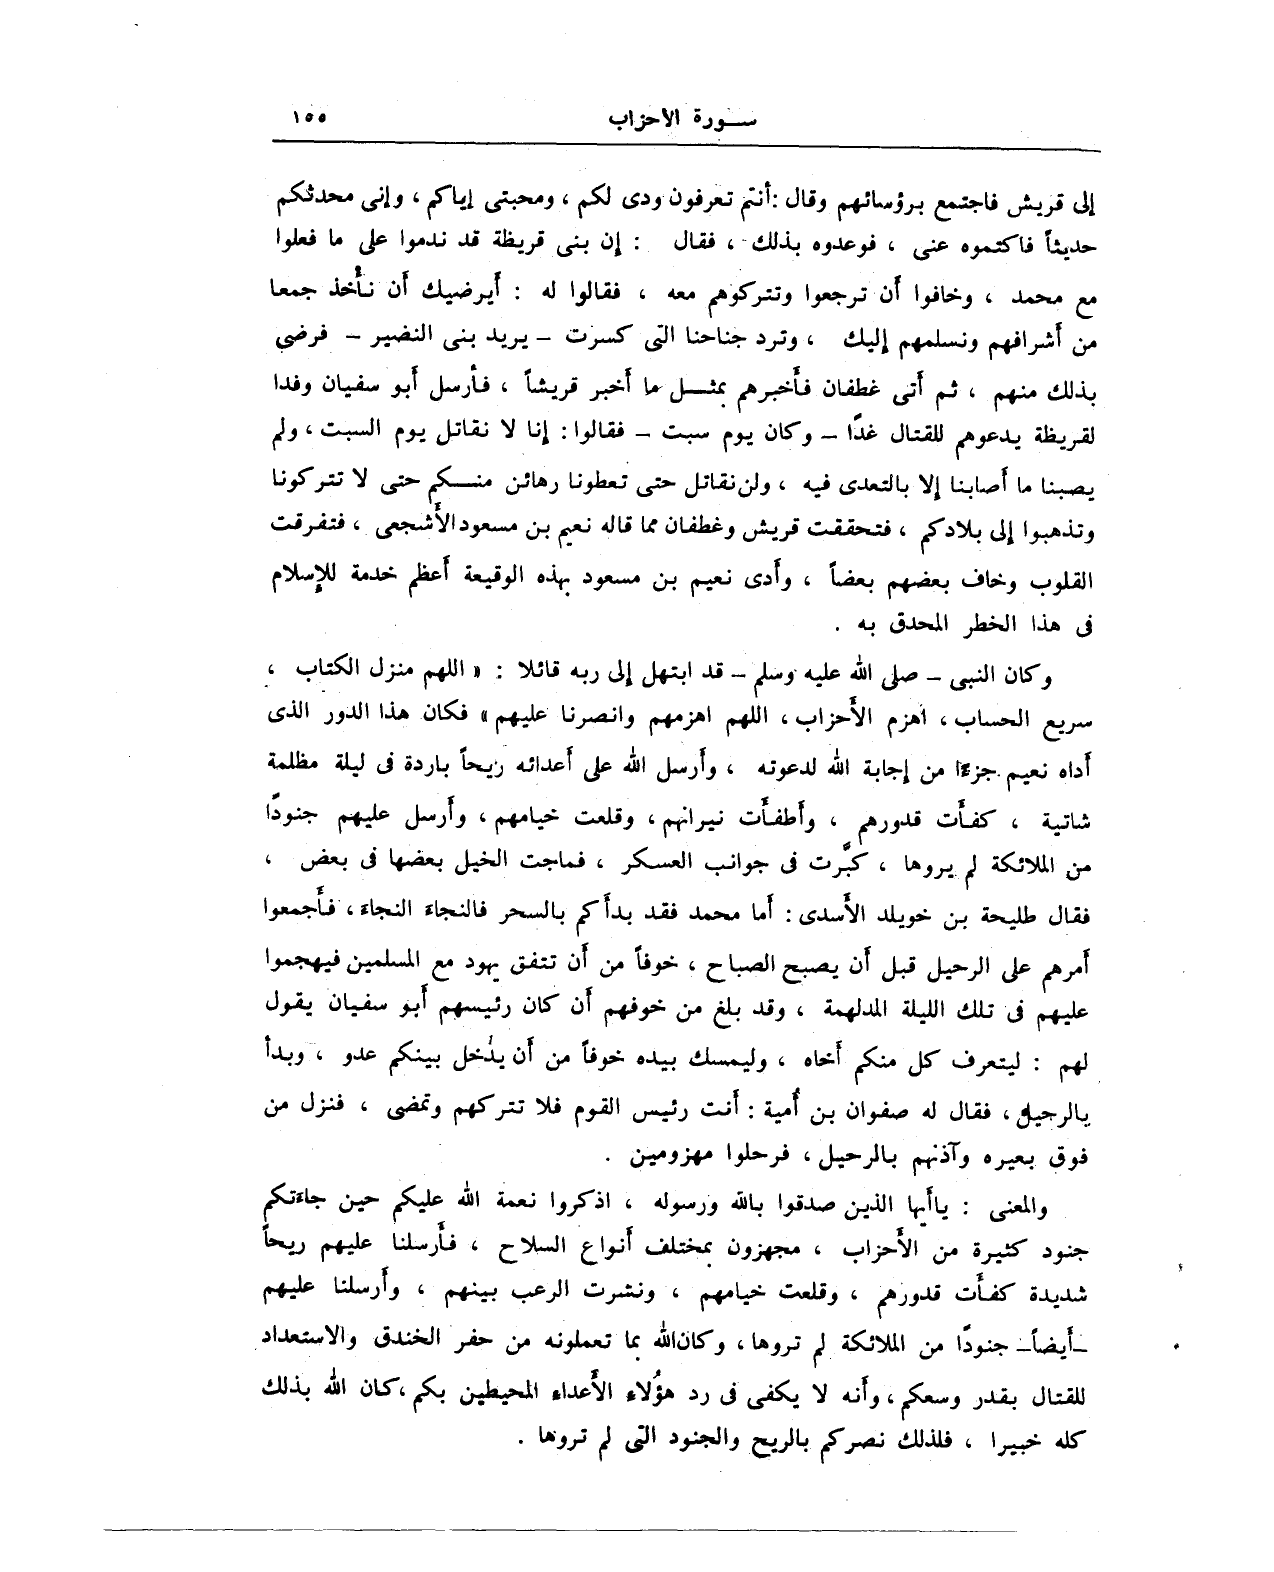 سورة الأحزاب ١٥٥
إلى قريش فاجتمع برؤسائهم وقال : أنتم تعرفون ودى لكم ، ومحبتى إياكم ، وإنى محدثكم
حديثاً فاكتموه عنى ، فوعدوه بذلك ، فقال : إن بنى قريظة قد ندموا على ما فعلوا
مع محمد ، وخافوا أن ترجعوا وتتركوهم معه ، فقالوا له : أيرضيك أن نأخذ جمعا
من أشرافهم ونسلمهم إليك ، وترد جناحنا التى كسرت – يريد بنى النضير – فرضى
بذلك منهم ، ثم أتى غطفان فأخبرهم بمثل ما أخبر قريشاً ، فأرسل أبو سفيان وفدا
لقريظة يدعوهم للقتال غدًا – وكان يوم سبت – فقالوا : إنا لا نقاتل يوم السبت ، ولم
يصبنا ما أصابنا إلا بالتعدى فيه ، ولن نقاتل حتى تعطونا رهائن منكم حتى لا تتركونا
وتذهبوا إلى بلادكم ، فتحققت قريش وغطفان مما قاله نعيم بن مسعود الأشجعى ، فتفرقت
القلوب وخاف بعضهم بعضاً ، وأدى نعيم بن مسعود بهذه الوقيعة أعظم خدمة للإسلام
فى هذا الخطر المحدق به .
وكان النبى – صلى الله عليه وسلم – قد ابتهل إلى ربه قائلا : « اللهم منزل الكتاب ،
سريع الحساب ، اهزم الأحزاب ، اللهم اهزمهم وانصرنا عليهم » فكان هذا الدور الذى
أداه نعيم جزءًا من إجابة الله لدعوته ، وأرسل الله على أعدائه ريحاً باردة فى ليلة مظلمة
شاتية ، كفأت قدورهم ، وأطفأت نيرانهم ، وقلعت خيامهم ، وأرسل عليهم جنودًا
من الملائكة لم يروها ، كبَّرت فى جوانب العسكر ، فماجت الخيل بعضها فى بعض ،
فقال طليحة بن خويلد الأسدى : أما محمد فقد بدأكم بالسحر فالنجاء النجاء ، فأجمعوا
أمرهم على الرحيل قبل أن يصبح الصباح ، خوفاً من أن تتفق يهود مع المسلمين فيهجموا
عليهم فى تلك الليلة المدلهمة ، وقد بلغ من خوفهم أن كان رئيسهم أبو سفيان يقول
لهم : ليتعرف كل منكم أخاه ، وليمسك بيده خوفاً من أن يدخل بينكم عدو ، وبدأ
بالرحيل ، فقال له صفوان بن أمية : أنت رئيس القوم فلا تتركهم وتمضى ، فنزل من
فوق بعيره وآذنهم بالرحيل ، فرحلوا مهزومين .
والمعنى : ياأيها الذين صدقوا بالله ورسوله ، اذكروا نعمة الله عليكم حين جاءتكم
جنود كثيرة من الأحزاب ، مجهزون بمختلف أنواع السلاح ، فأرسلنا عليهم ريحاً
شديدة كفأت قدورهم ، وقلعت خيامهم ، ونشرت الرعب بينهم ، وأرسلنا عليهم
– أيضاً – جنودًا من الملائكة لم تروها ، وكان الله بما تعملونه من حفر الخندق والاستعداد
للقتال بقدر وسعكم ، وأنه لا يكفى فى رد هؤلاء الأعداء المحيطين بكم ، كان الله بذلك
كله خبيرا ، فلذلك نصركم بالريح والجنود التى لم تروها .